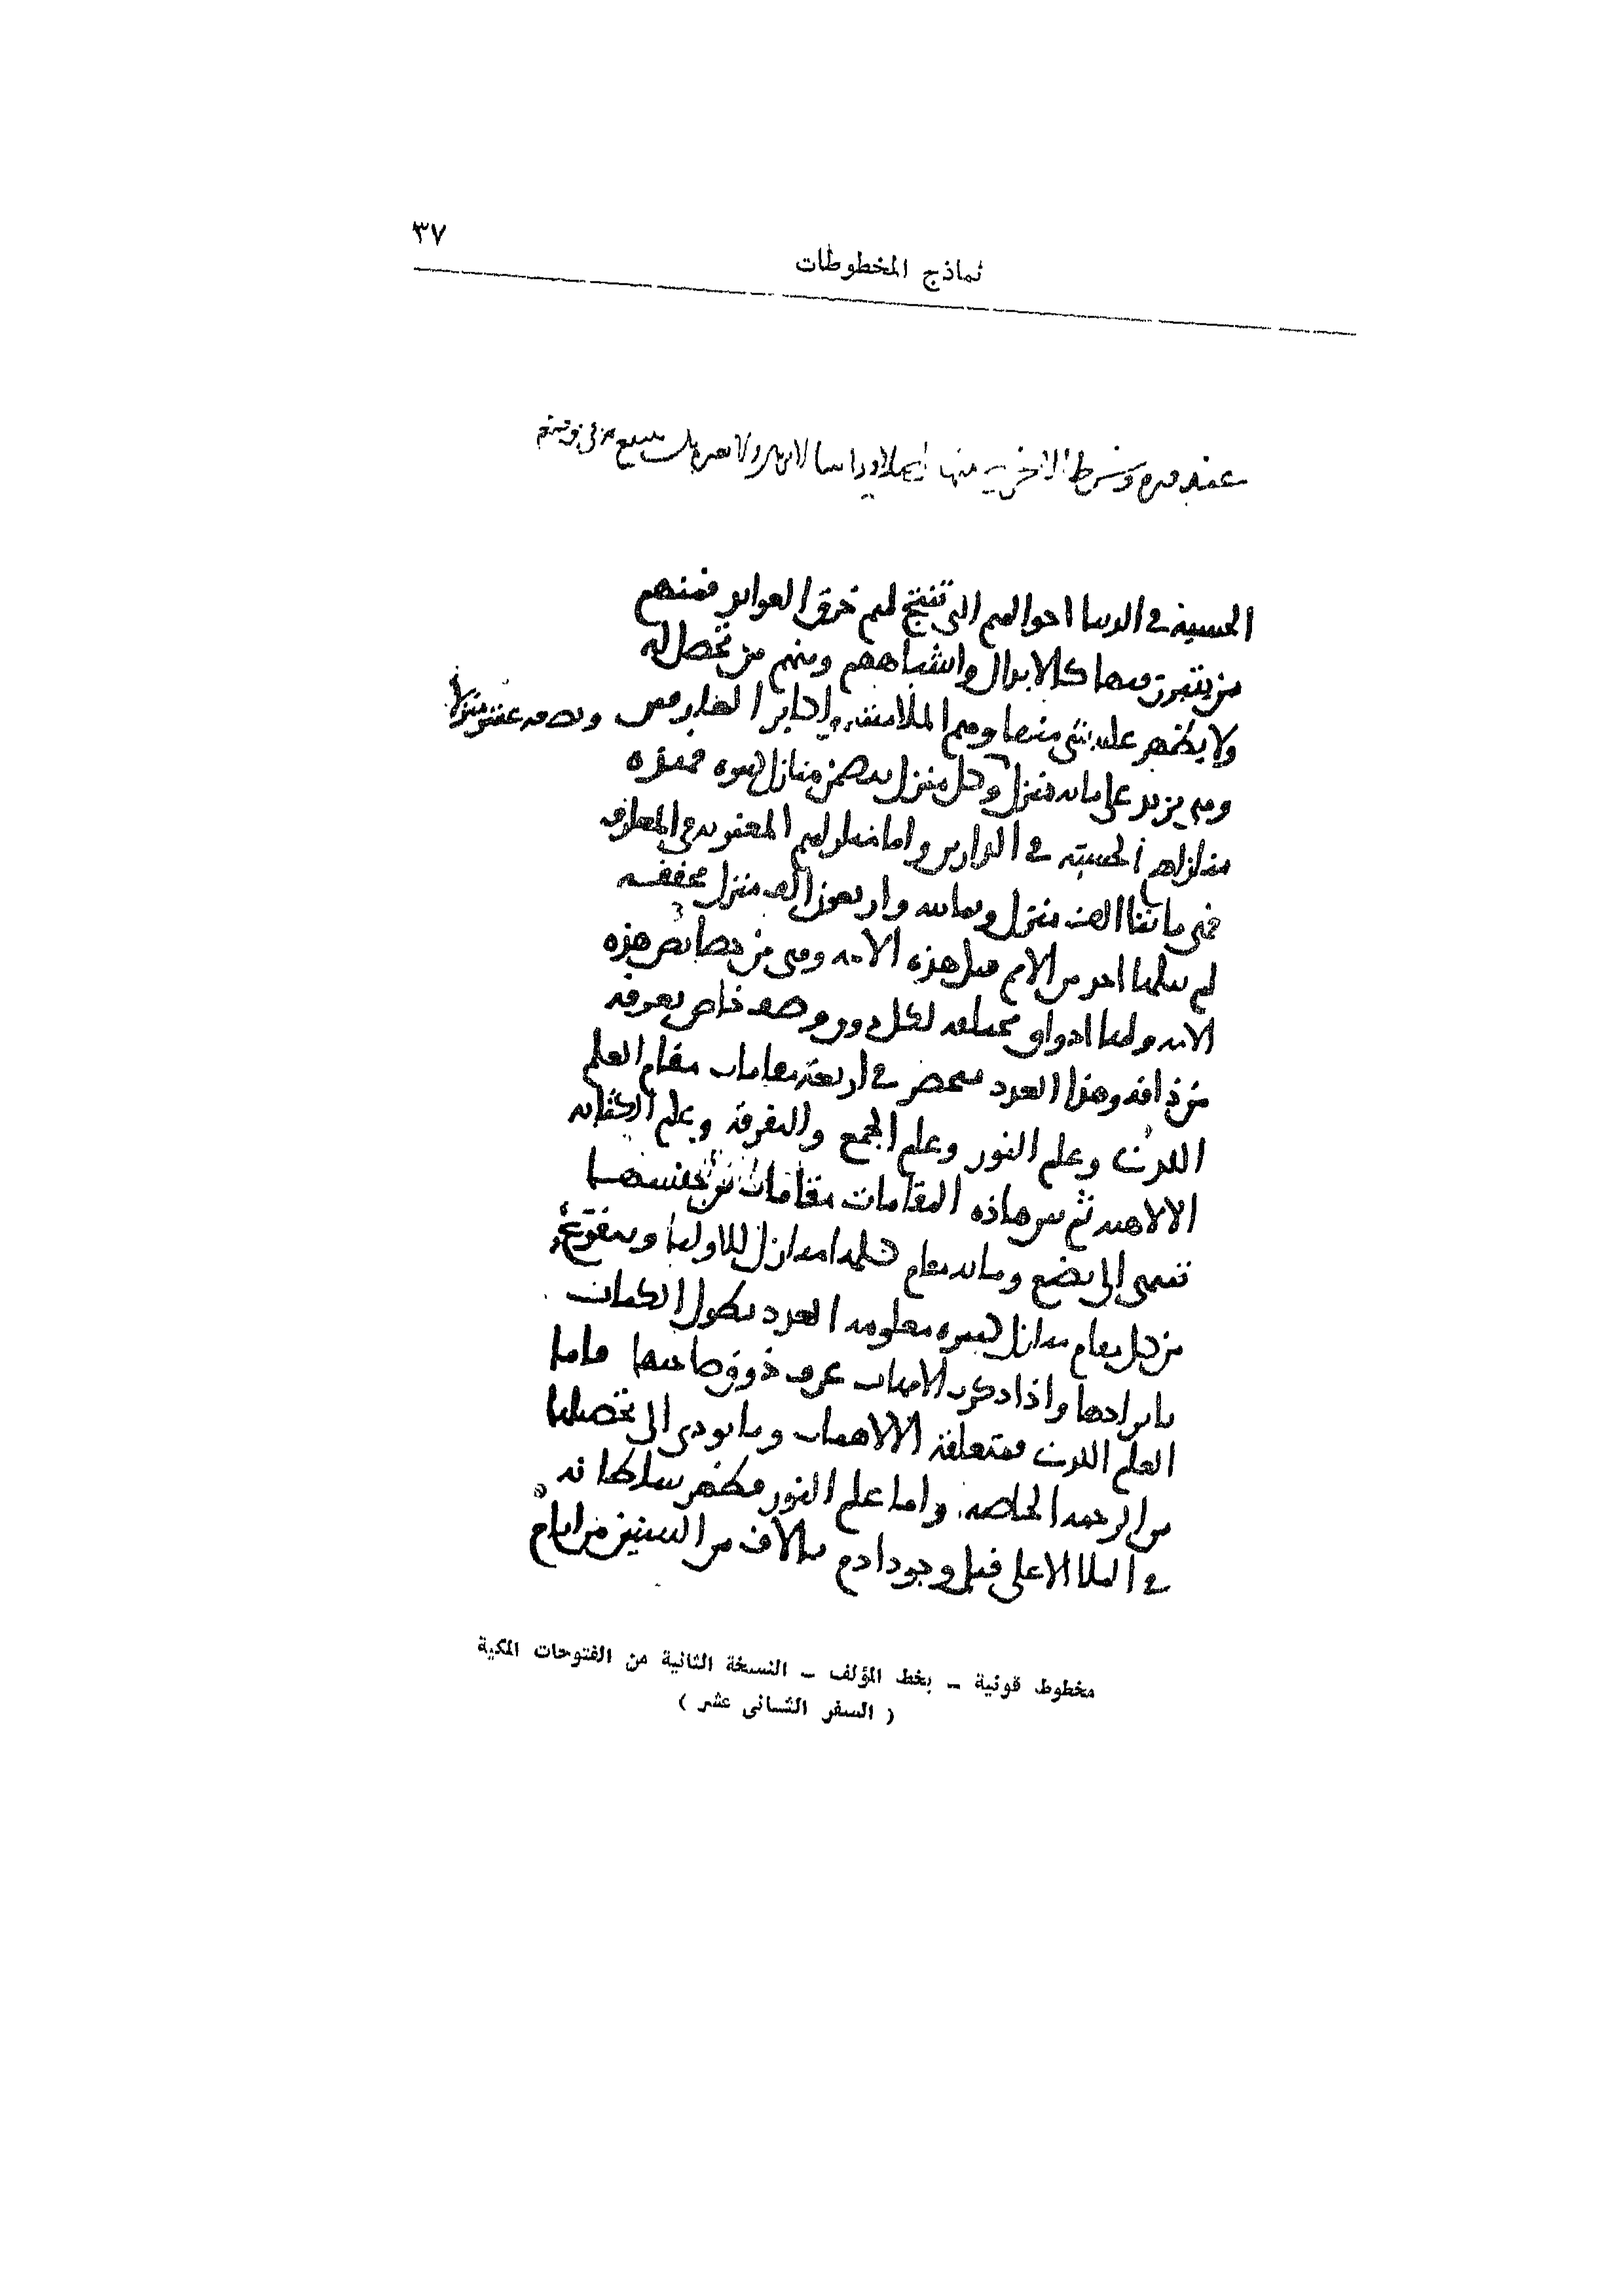 ٣٧
نماذج المخطوطات
الحسية في الدنيا احوالهم التي تنتج لهم خرق العوايد فمنهم
من يتبرز فيها كالابدال واشباههم ومنهم من تحصل له
ولا يظهر عليه شي منها وهم الملامتية واكابر العارفين
وهي تزيد على مائة منزل وكل منزل يتضمن منازل كثيره فهذه
منازلهم الحسية في الدارين واما منازلهم المعنوية في المعارف
فهي مائتا الف منزل وثمانية واربعون الف منزل محققة
لم ينلها احد من الامم قبل هذه الامه وهي من خصائص هذه
الامه ولها اذواق مختلفه لكل ذوق وصف خاص يعرفه
من ذاقه وهذا العدد منحصر في اربعة مقامات مقام العلم
اللدني وعلم النور وعلم الجمع والتفرقة وعلم الكتابه
الالاهيه ثم بين هاذه المقامات مقامات من جنسها
تنتهي الى بضع ومائه مقام كلها منازل للاوليا ويتفرع
من كل مقام منازل كثيره معلومه العدد يطول الكتاب
بايرادها واذا ذكرت الامهات عرف ذوق صاحبها فاما
العلم اللدني فمتعلقه الالاهيات وما يودي الى تحصيلها
من الرحمه الخاصه واما علم النور فظهر سلطانه
في الملا الاعلى قبل وجود ادم بالاف من السنين من ايام
مخطوط قونية – بخط المؤلف – النسخة الثانية من الفتوحات المكية
( السفر الثاني عشر )